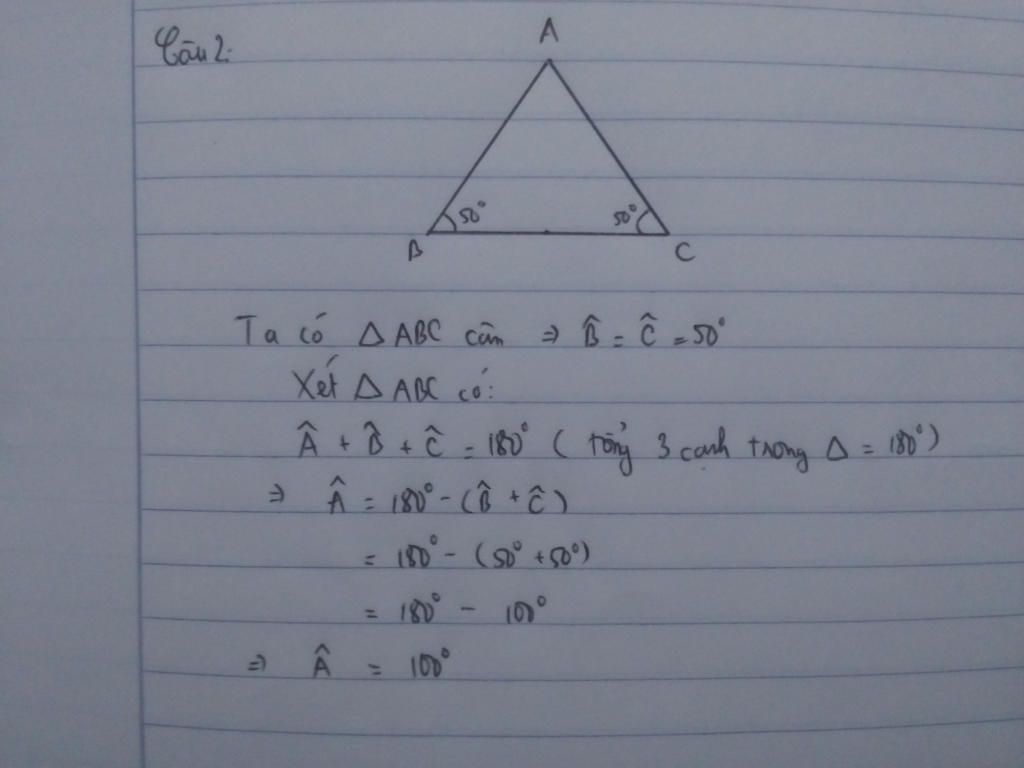 Câu 2:
A
50° 50°
B C
Ta có △ ABC cân ⇒ B̂ = Ĉ = 50°
Xét △ ABC có:
Â + B̂ + Ĉ = 180° ( tổng 3 cạnh trong △ = 180°)
⇒ Â = 180° - (B̂ + Ĉ)
= 180° - (50° + 50°)
= 180° - 100°
⇒ Â = 100°